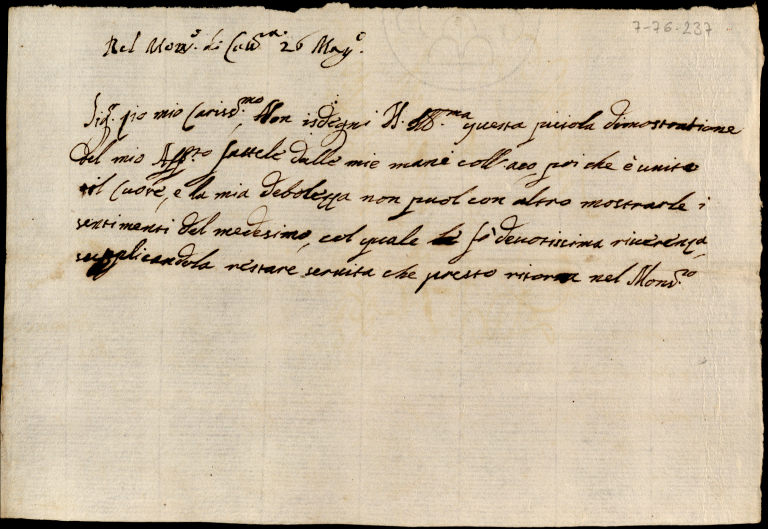 7-76-237
Nel Mon.ro di 26 Mag.o
Sig.r zio mio Cariss.mo Non isdegni V. Ill.ma questa piciola dimostratione
del mio Aff.to fattele dalle mie mane coll'aco poi che è unito
il Cuore, e la mia debolezza non puol con altro mostrarle i
sentimenti del medesimo, col quale fò devotissima riverenza,
supplicandola restare servita che presto ritorna nel Mons.ro